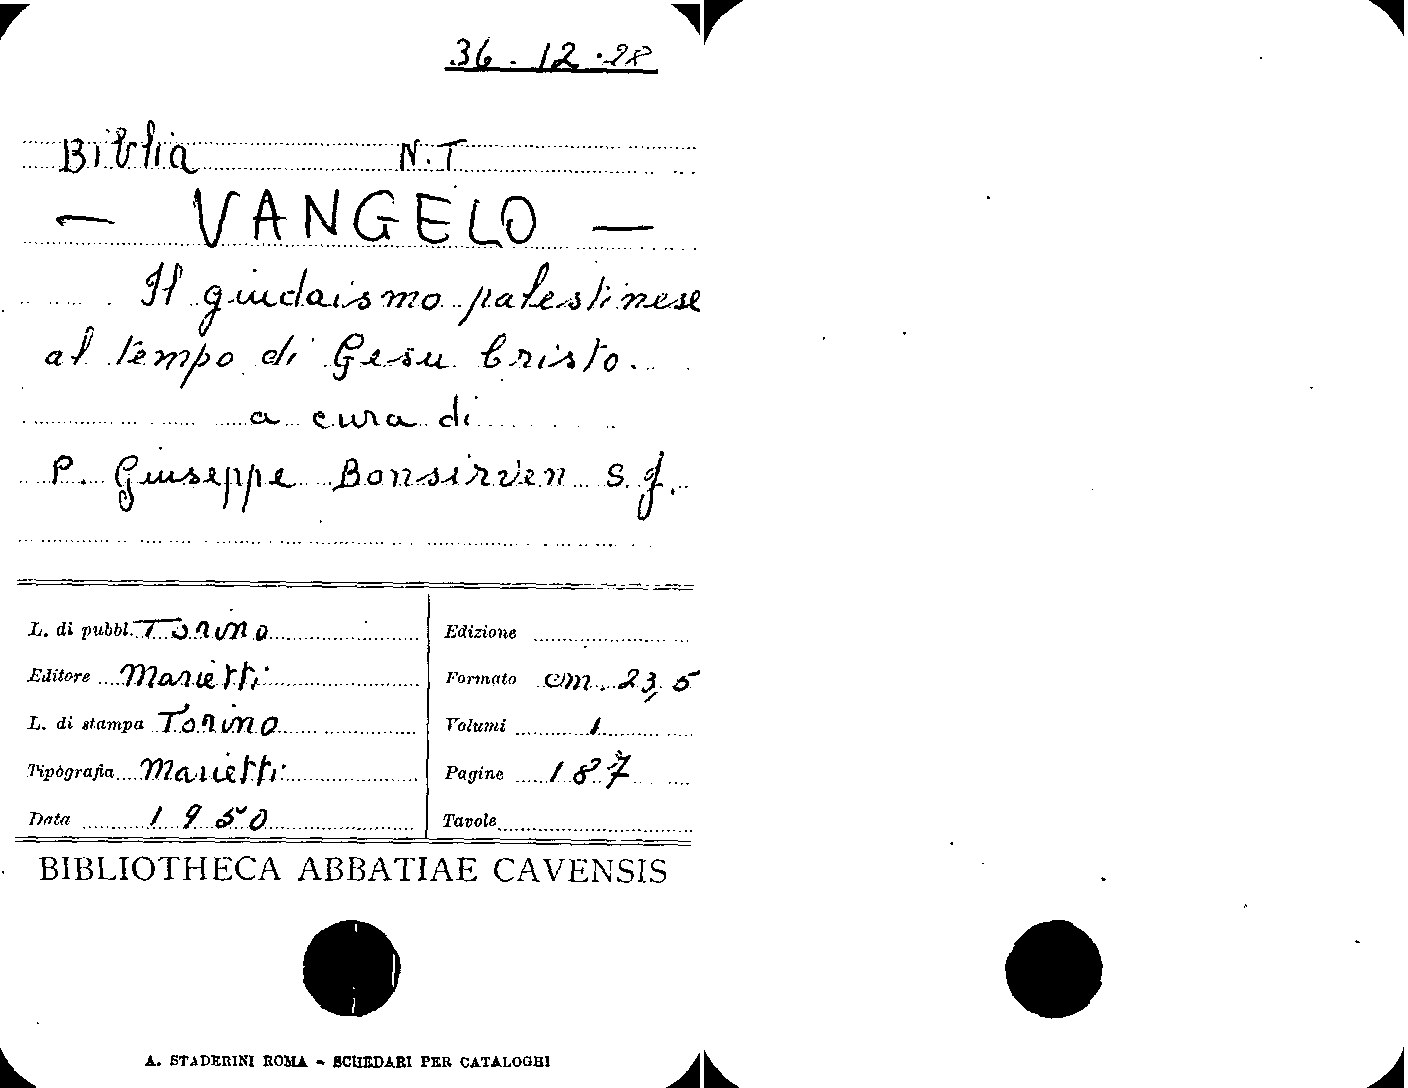 36.12.28
Biblia N.T
— VANGELO —
Il giudaismo palestinese
al tempo di Gesu Cristo.
a cura di
P. Giuseppe Bonsirven S.J.
L. di pubbl. Torino
Editore Marietti
L. di stampa Torino
Tipografia Marietti
Data 1950
Edizione
Formato cm. 23,5
Volumi 1
Pagine 187
Tavole
BIBLIOTHECA ABBATIAE CAVENSIS
A. STADERINI ROMA - SCHEDARI PER CATALOGHI